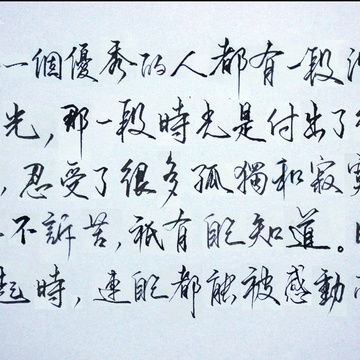 一個優秀的人都有一段
光,那一段時光是付出了
,忍受了很多孤獨和寂寞
不訴苦,衹有自己知道。
起時,連自己都能被感動